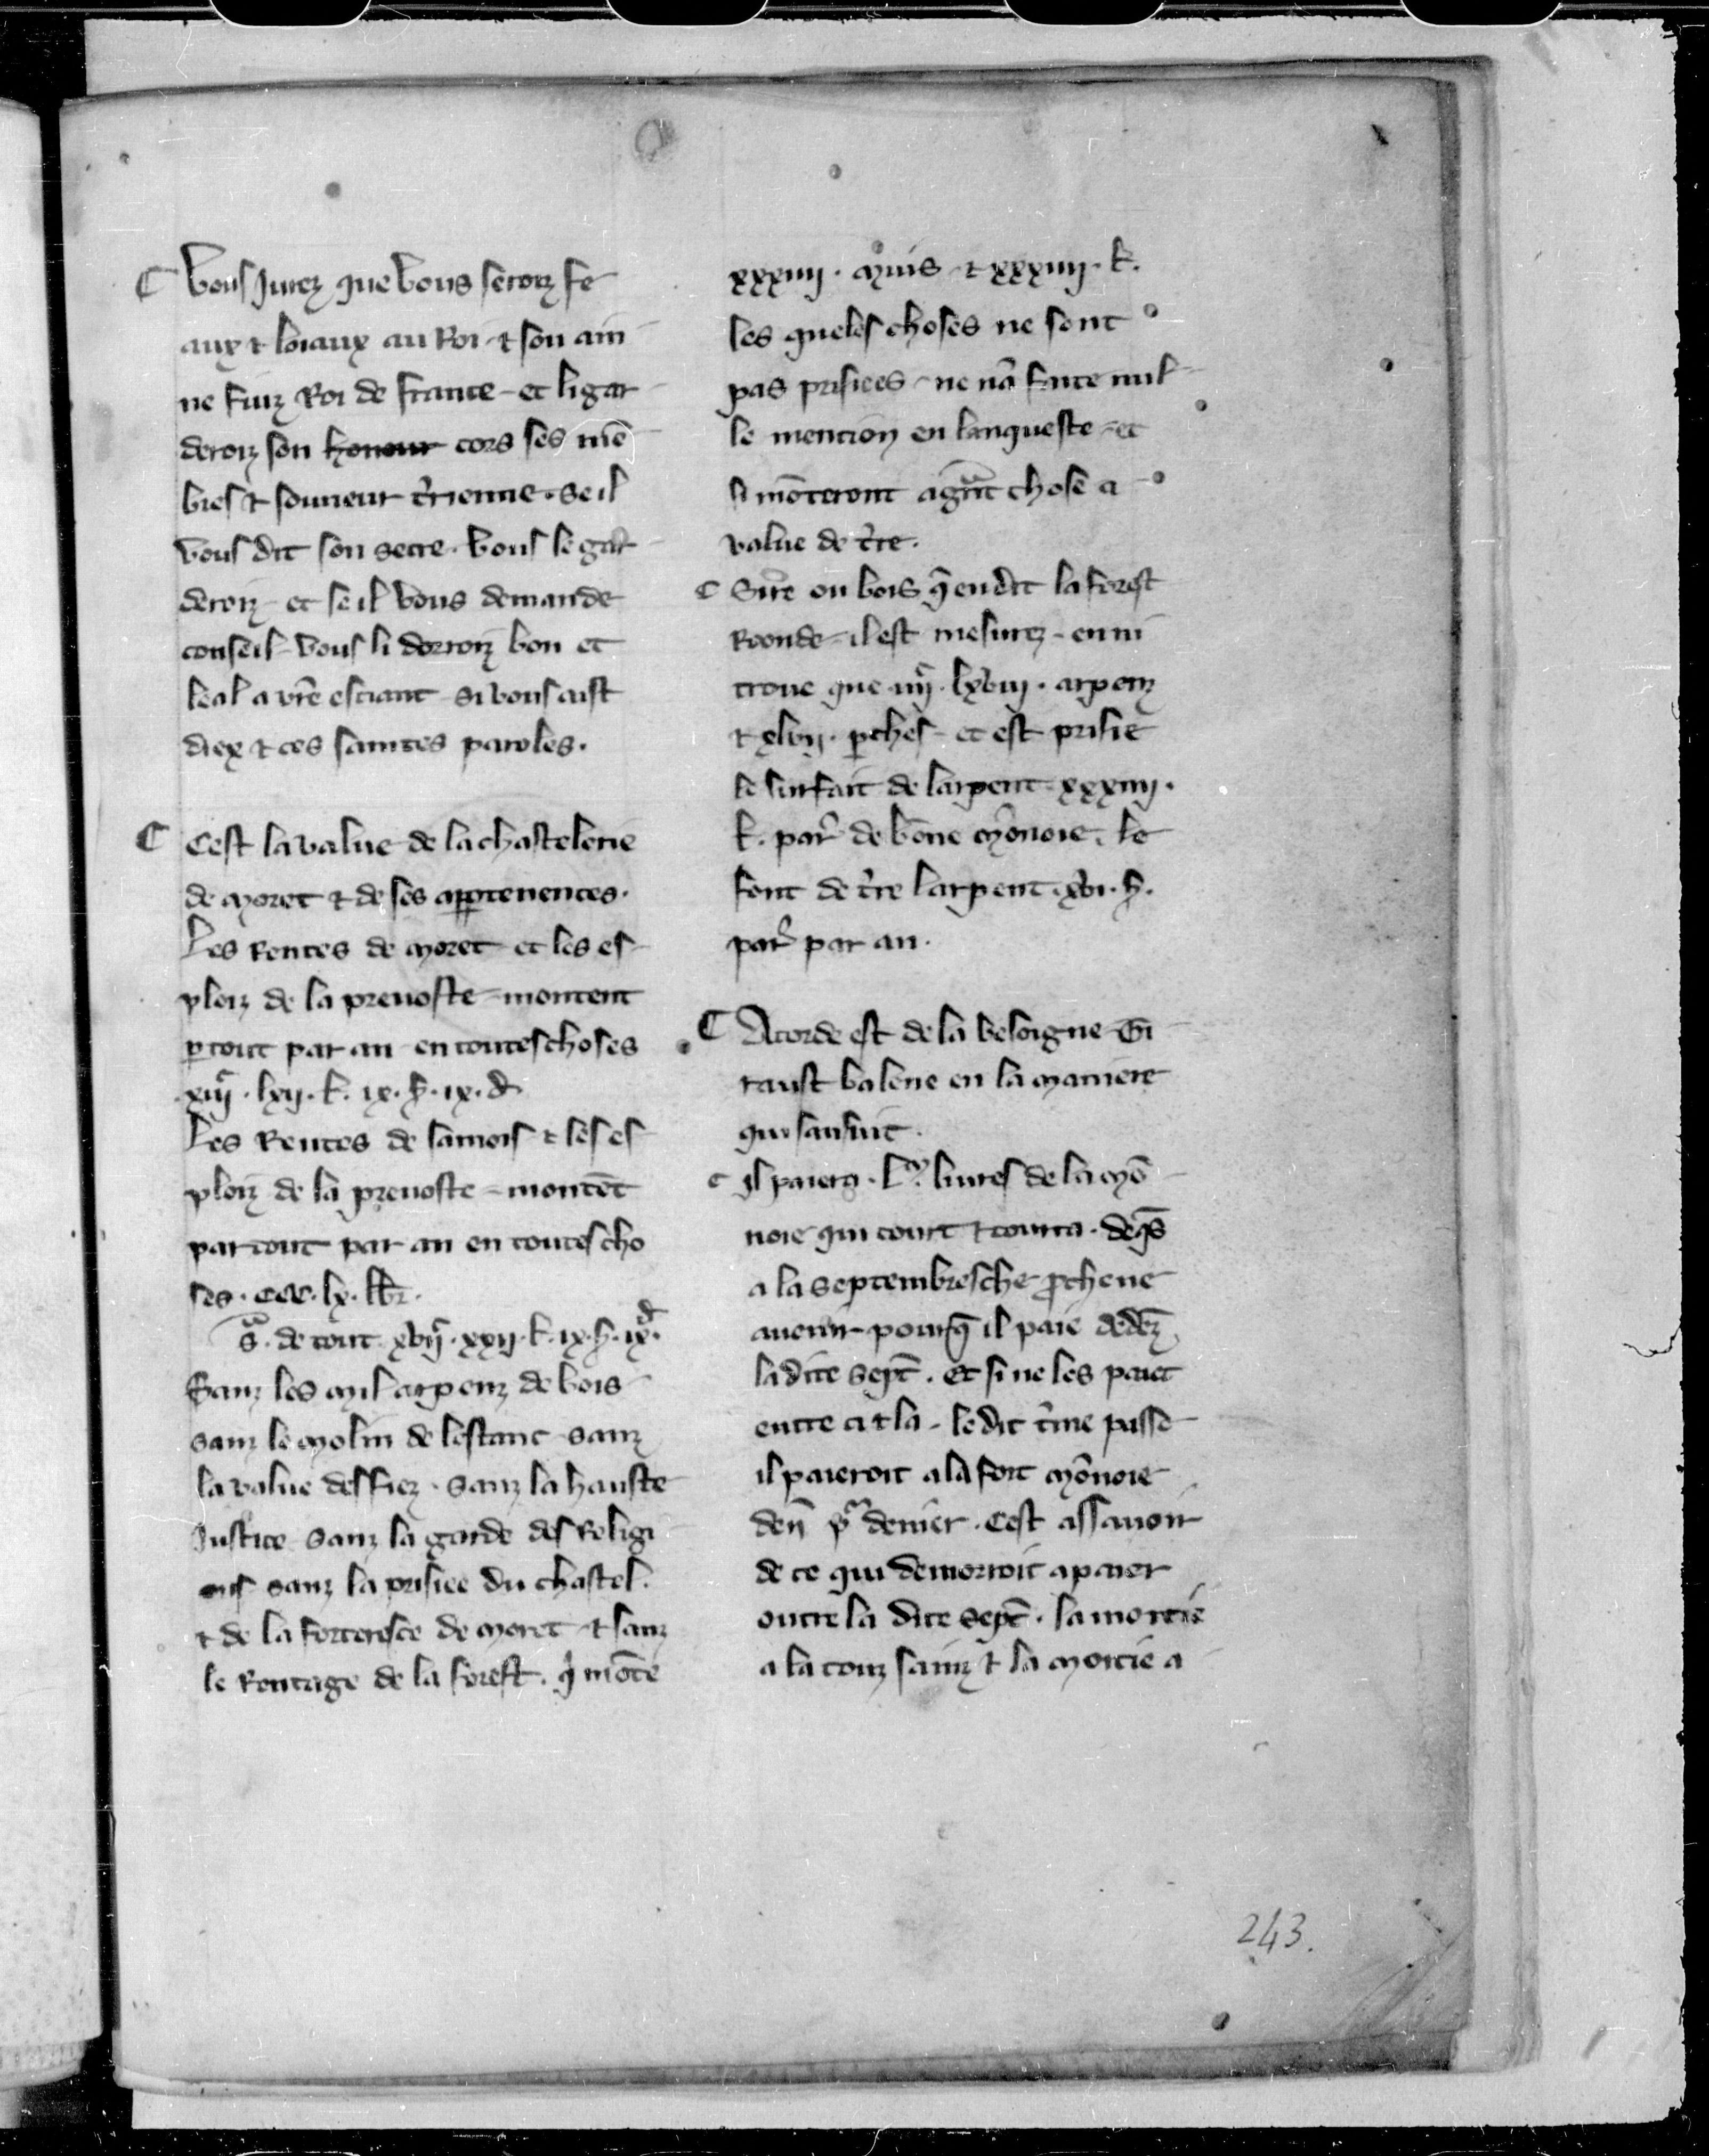 C Vous jurez que vous seroiz fe
aux ⁊ loiaux au Roi ⁊ son ain
ne fiuz Roi de france - et li gar
deroiz son honour cors ses mē
bres ⁊ sonneur t̉rienne . se il
vous dit son secre . vous le gar
deroiz - et se il vous demande
conseil - vous li dorroiz bon et
leal a vr̄e esciant - si vous aist
diex ⁊ ces saintes paroles .
C Cest la value de la chastelerie
de moret ⁊ de ses apptenences .
Les Rentes de moret - et les es
ploiz de la prevoste - montent
ꝑ tout par an - en toutes choses
xiijͨ . lxij . ł . ix . s . ix . d
Les Rentes de samois ⁊ les es
ploiz de la prevoste - montēt
par tout par an en toutes cho
ses . ccc . lx . lbr .
Sᵃ . de tout . xvijͨ . xxij . ł . ix . s . ix . d
Sanz les mil arpenz de bois
sanz le molin de lestanc - sanz
la value des fiez . sanz la hauste
Justice sanz la garde des Religi
eus sanz la prisiee du chastel .
⁊ de la forteresce de moret - ⁊ sanz
le Rentage de la forest . qͥ mōte
xxxiiij . muis - ⁊ xxxiiij . ł .
les queles choses ne sont
pas prisiees - ne nā faite nul
le mention en lanqueste - et
si mōteront a grāt chose a
value de t̉re .
C Sire ou bois q̄ en dit la forest
Roonde - il est mesurez - en ni
trove que iiijͨ . lxviij . arpenz
⁊ xlvij . ꝑches - et est prisie
le surfait de larpent - xxxiiij .
ł . par̉ de bōne mōnoie . le
font de t̉re larpent . xvi . s .
par̉ par an .
C Acorde est de la besoigne Gi
raust balene en la maniere
qui sansuit .
C Il paiera . Lͫ . livres de la mō
noie qui court ⁊ courra . deq̄s
a la septembresche ꝓchene
avenir - pour q̄ il paie dedēz
la dite sept̄ . Et si ne les paiet
entre ci ⁊ la - le dit t̉me passe
il paieroit a la fort mōnoie
den̄ pͬ denier . Cest assavoir
de ce qui demorroit a paier
outre la dite sept̄ . la moitie
a la touz sainz ⁊ la moitie a
243.